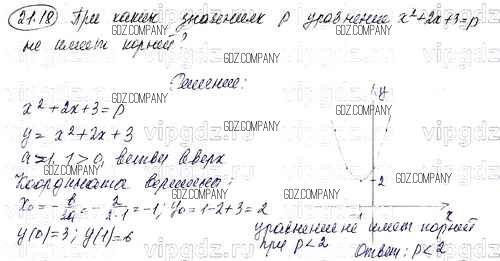 21.18 При каких значениях p уравнение x²+2x+3=p
не имеет корней?
Решение:
x²+2x+3=p
y = x²+2x+3
a=1, 1>0, ветви вверх
Координаты вершины:
x₀ = -b/2a = -2/2·1 = -1; y₀ = 1-2+3 = 2
y(0)=3; y(1)=6
y
2
-1
x
уравнение не имеет корней
при p<2
Ответ: p<2
GDZ.COMPANY
vipgdz.ru